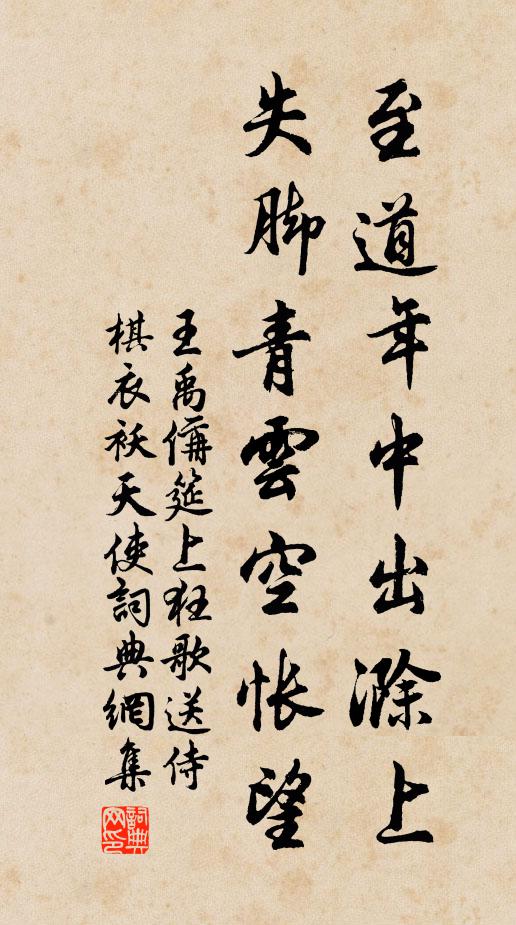 至道年中出滁上
失脚青雲空悵望
王禹偁筵上狂歌送侍
棋衣袄天使詞典網集
詞典网印